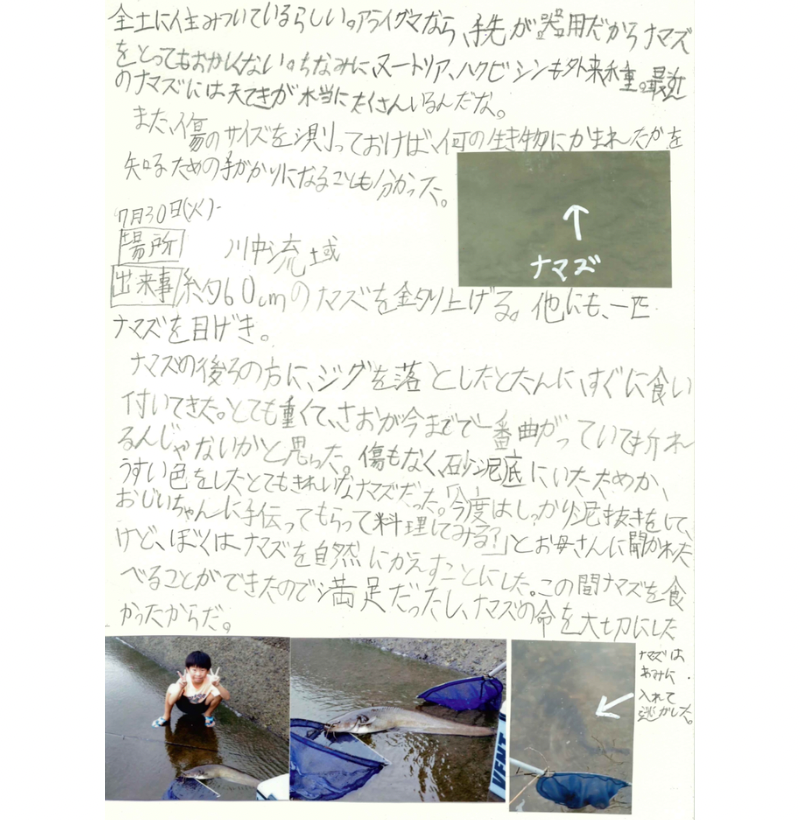 全土に住みついているらしい。アライグマなら、手先が器用だからナマズ
をとってもおかしくない。ちなみに、ヌートリア、ハクビシンも外来種。最近
のナマズには天てきが本当にたくさんいるんだな。
また、傷のサイズを測っておけば、何の生き物にかまれたかを
知るための手がかりになることも分かった。
ナマズ
7月30日(火)
場所 川中流域
出来事 約60cmのナマズを釣り上げる。他にも、一匹
ナマズを目げき。
ナマズの後ろの方に、ジグを落としたとたんに、すぐに食い
付いてきた。とても重くて、さおが今までで一番曲がっていて折れ
るんじゃないかと思った。傷もなく、砂泥底にいたためか、
うすい色をしたとてもきれいなナマズだった。「今度はしっかり泥抜きをして、
おじいちゃんに手伝ってもらって料理してみる?」とお母さんに聞かれた
けど、ぼくはナマズを自然にかえすことにした。この間ナマズを食
べることができたので満足だったし、ナマズの命を大切にした
かったからだ。
ナマズは
あみに
入れて
逃がした。
VENT